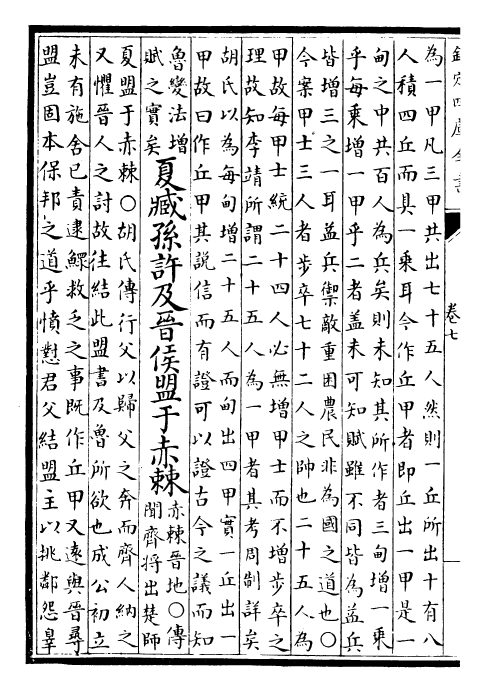 欽定四庫全書
卷七
為一甲凡三甲共出七十五人然則一丘所出十有八
人積四丘而具一乘耳今作丘甲者即丘出一甲是一
甸之中共百人為兵矣則未知其所作者三甸增一乘
乎每乘增一甲乎二者盖未可知賦雖不同皆為益兵
皆增三之一耳益兵禦敵重困農民非為國之道也○
今案甲士三人者步卒七十二人之帥也二十五人為
甲故每甲士統二十四人必無增甲士而不增步卒之
理故知李靖所謂二十五人為一甲者其考周制詳矣
胡氏以為每甸增二十五人而甸出四甲實一丘出一
甲故曰作丘甲其說信而有證可以證古今之議而知
魯變法增
賦之實矣
夏臧孫許及晉侯盟于赤棘
赤棘晉地○傳
聞齊將出楚師
夏盟于赤棘○胡氏傳行父以歸父之奔而齊人納之
又懼晉人之討故往結此盟書及魯所欲也成公初立
未有施舍已責逮鰥救乏之事既作丘甲又遽與晉尋
盟豈固本保邦之道乎憤懟君父結盟主以挑鄰怨辠